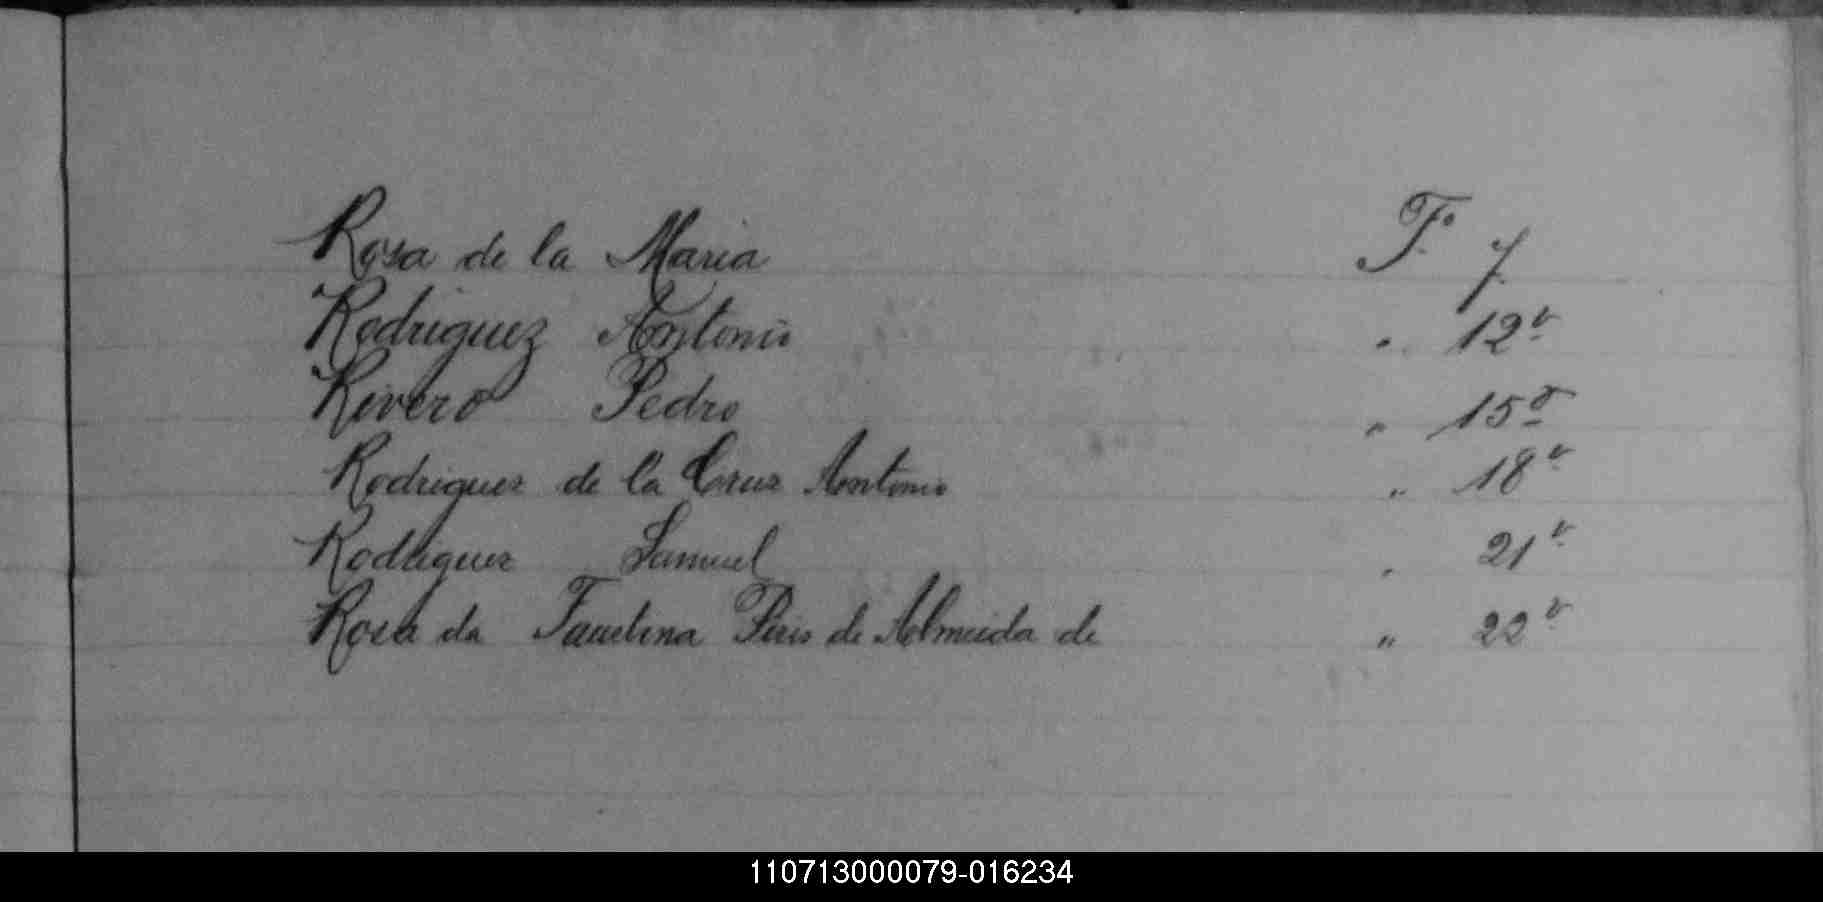 Rosa de la Maria Fº 7
Rodriguez Antonio " 12v
Rivero Pedro " 15v
Rodriguez de la Cruz Antonio " 18v
Rodriguez Samuel " 21v
Rosa da Faustina Piris de Almeida de " 22v
110713000079-016234